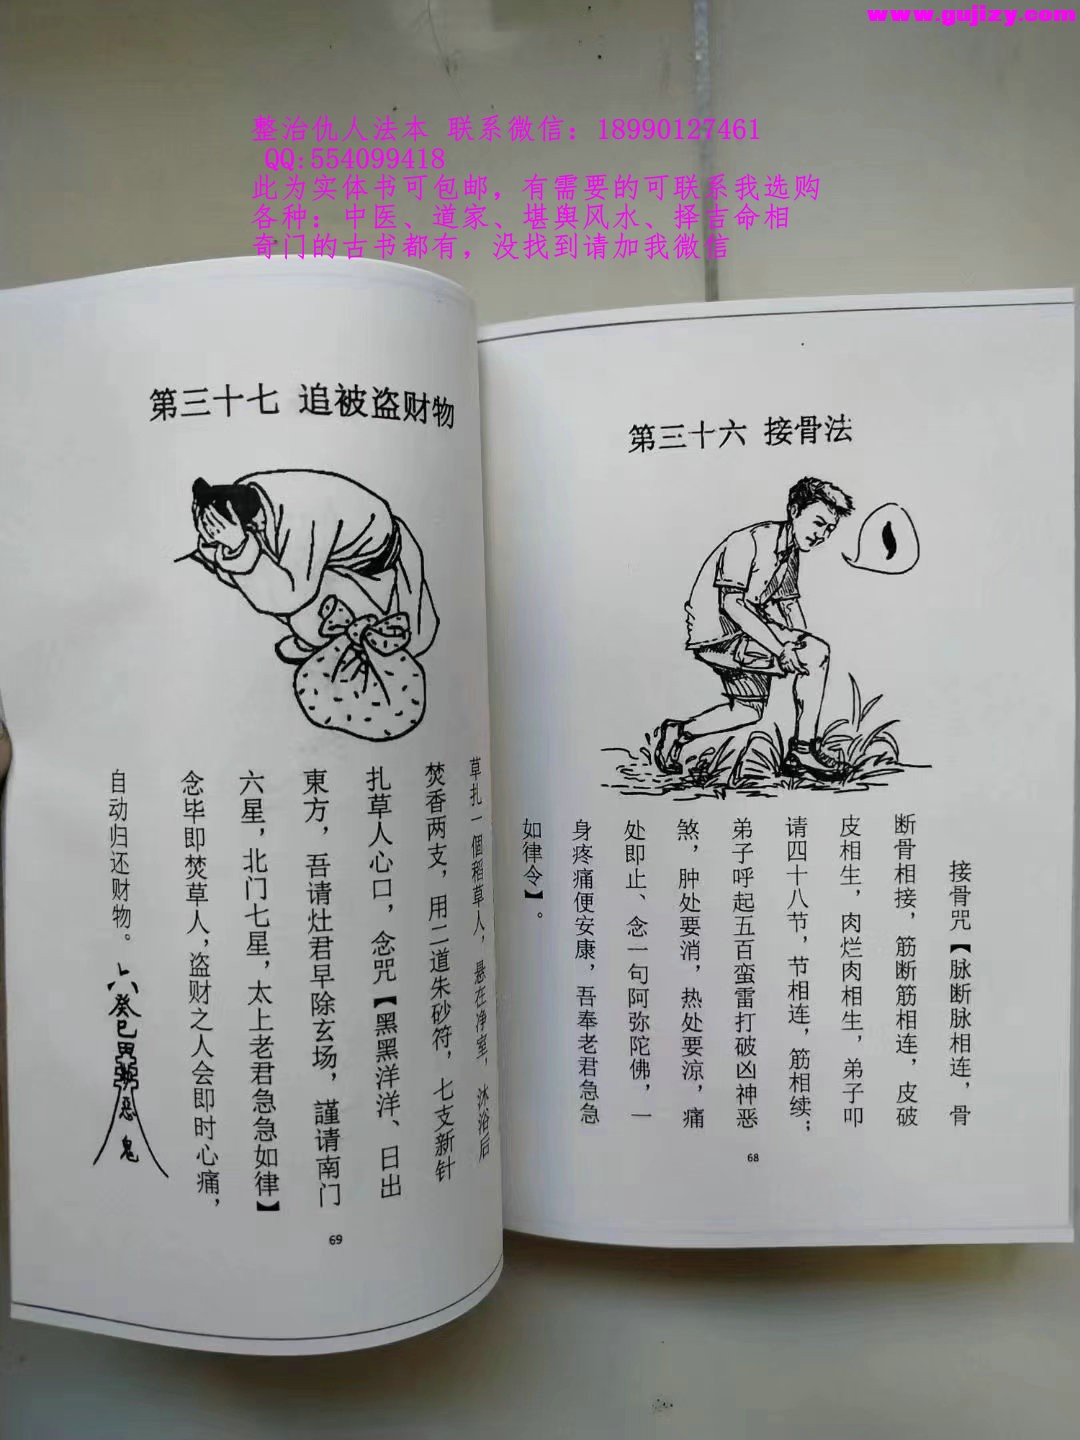 www.gujizy.com
整治仇人法本 联系微信：18990127461
QQ:554099418
此为实体书可包邮，有需要的可联系我选购
各种：中医、道家、堪舆风水、择吉命相
奇门的古书都有，没找到请加我微信
第三十六 接骨法
接骨咒【脉断脉相连，骨
断骨相接，筋断筋相连，皮破
皮相生，肉烂肉相生，弟子叩
请四十八节，节相连，筋相续；
弟子呼起五百蛮雷打破凶神恶
煞，肿处要消，热处要凉，痛
处即止、念一句阿弥陀佛，一
身疼痛便安康，吾奉老君急急
如律令】。
68
第三十七 追被盗财物
草扎一個稻草人，悬在净室，沐浴后
焚香两支，用二道朱砂符，七支新针
扎草人心口，念咒【黑黑洋洋、日出
東方，吾请灶君早除玄场，謹请南门
六星，北门七星，太上老君急急如律】
念毕即焚草人，盗财之人会即时心痛，
自动归还财物。
癸巳
惡
鬼
69